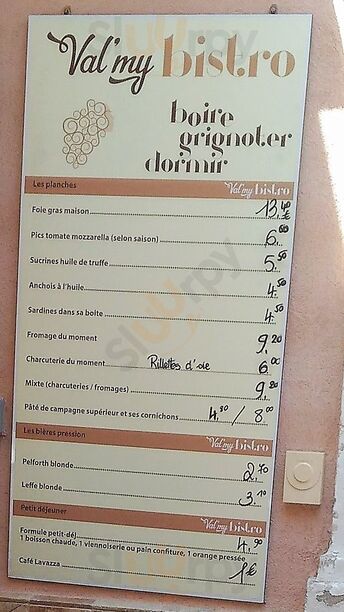 Val'my bistro
boire
grignoter
dormir
Les planches Val'my bistro
Foie gras maison 13,40 €
Pics tomate mozzarella (selon saison) 6,00
Sucrines huile de truffe 5,50
Anchois à l'huile 4,50
Sardines dans sa boite 4,50
Fromage du moment 9,20
Charcuterie du moment Rillettes d'oie 6,00
Mixte (charcuteries / fromages) 9,20
Pâté de campagne supérieur et ses cornichons 4,80 / 8,00
Les bières pression Val'my bistro
Pelforth blonde 2,70
Leffe blonde 3,10
Petit déjeuner Val'my bistro
Formule petit-déj 4,90
1 boisson chaude, 1 viennoiserie ou pain confiture, 1 orange pressée
Café Lavazza 1€
sluurpy